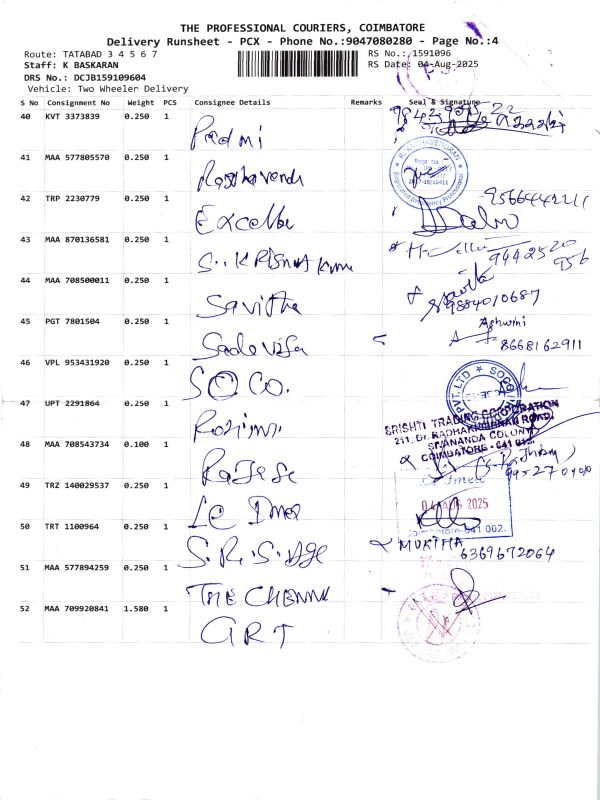 THE PROFESSIONAL COURIERS, COIMBATORE
Delivery Runsheet - PCX - Phone No.:9047080280 - Page No.:4
Route: TATABAD 3 4 5 6 7
RS No.: /1591096
Staff: K BASKARAN
RS Date: 04-Aug-2025
DRS No.: DCJB159109604
Vehicle: Two Wheeler Delivery
S No Consignment No Weight PCS Consignee Details Remarks Seal & Signature
40 KVT 3373839 0.250 1
Padmi
41 MAA 577805570 0.250 1
Raghavendi
42 TRP 2230779 0.250 1
Excellar
9566442211
43 MAA 870136581 0.250 1
S. KRISHNA Kumar
9442520
956
44 MAA 708500011 0.250 1
Savitha
9884010687
45 PGT 7801504 0.250 1
Sadavisa
Ashwini
8668162911
46 VPL 953431920 0.250 1
SOCO.
PVT. LTD
47 UPT 2291864 0.250 1
SRISHTI TRADING CORPORATION
211, Dr. RADHAKRISHNAN ROAD,
SIVANANDA COLONY,
COIMBATORE - 641 012.
48 MAA 708543734 0.100 1
Rajese
49 TRZ 140029537 0.250 1
Le Dmea
04 AUG 2025
641 002.
50 TRT 1100964 0.250 1
S.R.S. Age
MUKTHA
6369672064
51 MAA 577894259 0.250 1
THE CHENNAI
52 MAA 709920841 1.580 1
GRT